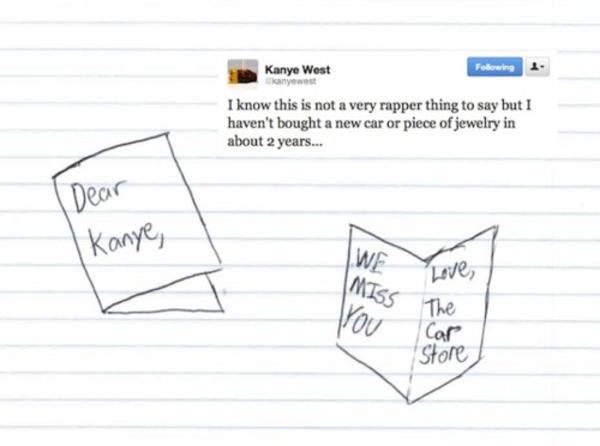 Kanye West
@kanyewest
Following
I know this is not a very rapper thing to say but I
haven't bought a new car or piece of jewelry in
about 2 years...
Dear
Kanye,
WE
MISS
YOU
Love,
The
Car
Store